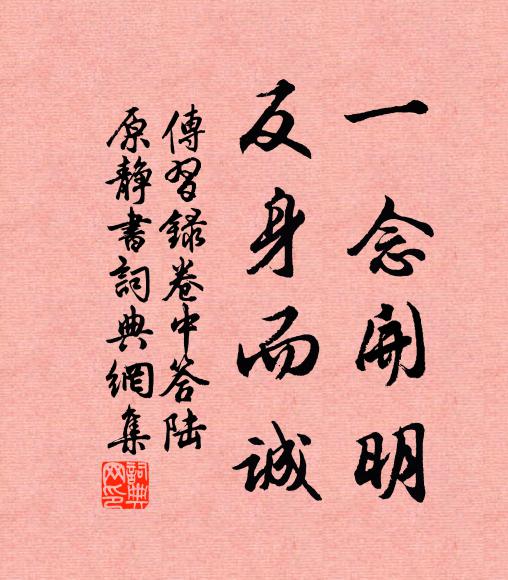 一念開明
反身而誠
傳習録卷中答陆
原靜書詞典網集
詞典网印